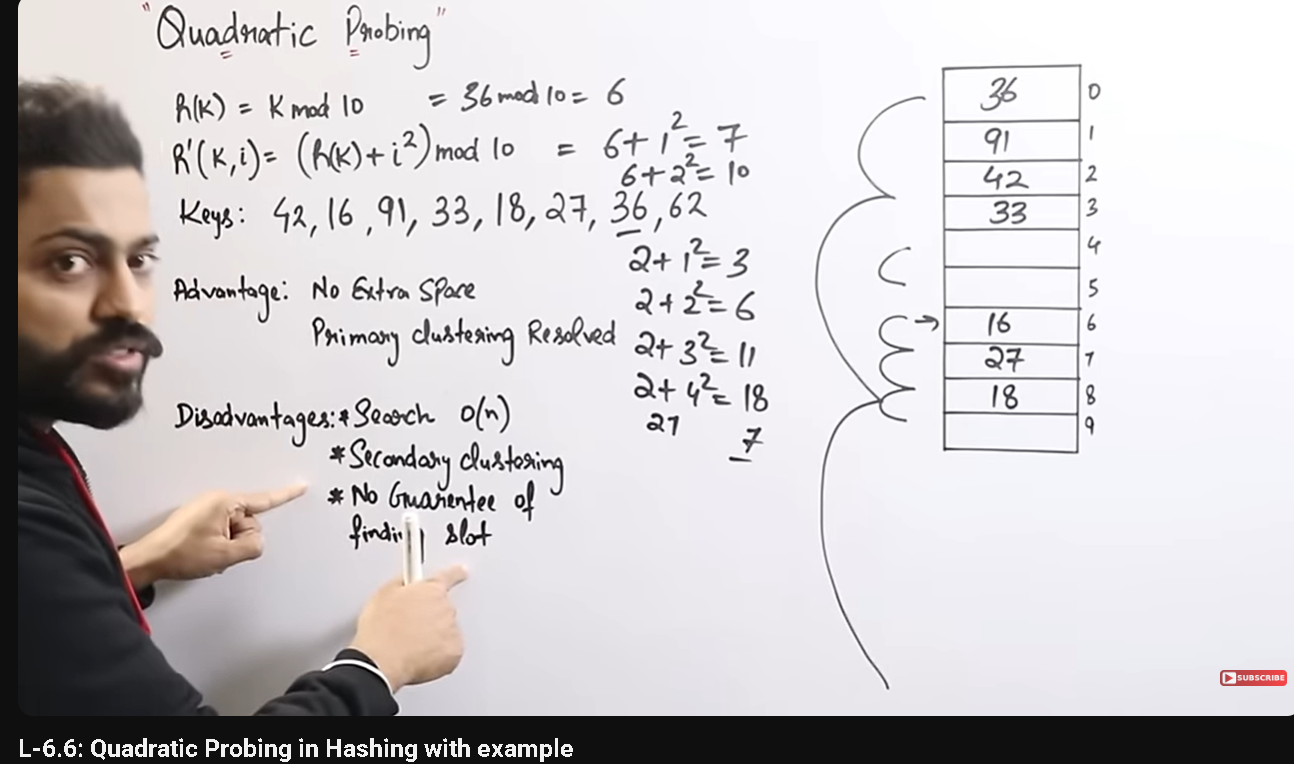 "Quadratic Probing"
h(K) = K mod 10 = 36 mod 10 = 6
h'(K,i) = (h(K)+i²) mod 10 = 6+1²=7
6+2²=10
Keys: 42, 16, 91, 33, 18, 27, 36, 62
2+1²=3
Advantage: No Extra Space
2+2²=6
Primary clustering Resolved
2+3²=11
2+4²=18
Disadvantages: * Search O(n)
27
7
* Secondary clustering
* No Guarentee of
slot
36 0
91 1
42 2
33 3
4
5
→ 16 6
27 7
18 8
9
SUBSCRIBE
L-6.6: Quadratic Probing in Hashing with example